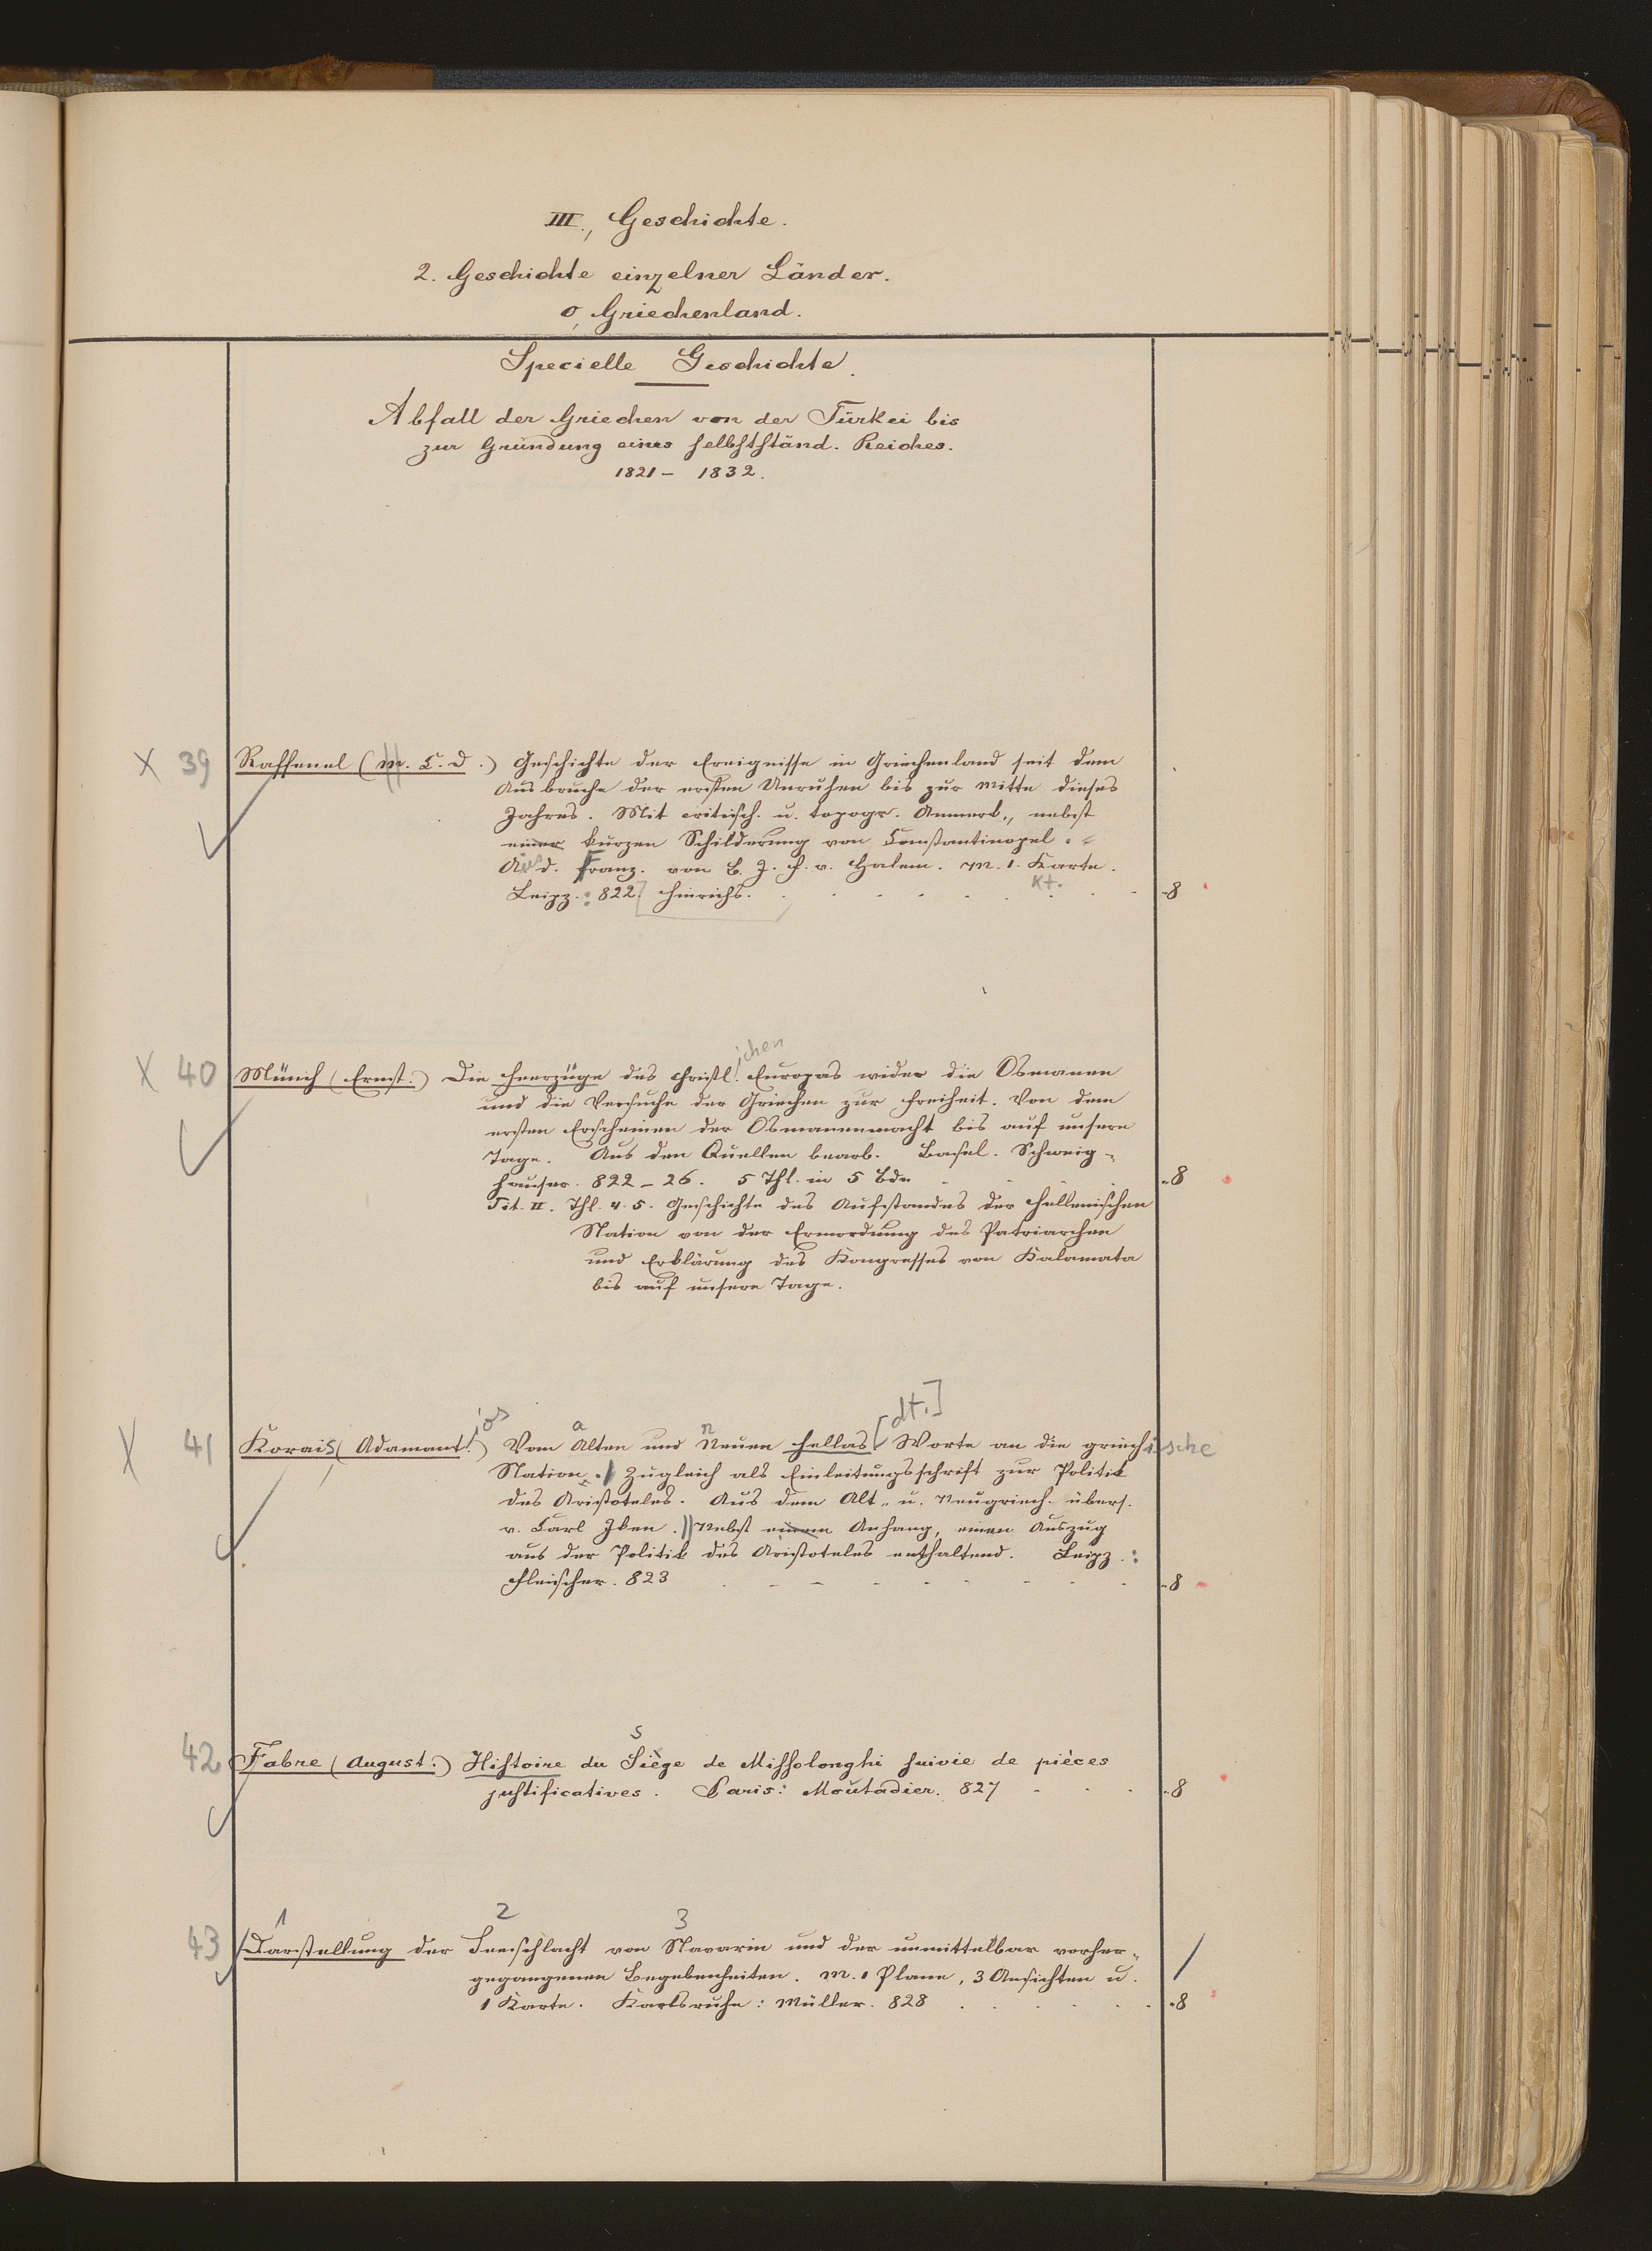 III., Geschichte.
2. Geschichte einzelner Länder.
o, Griechenland.
Specielle Geschichte.
Abfall der Griechen von der Türkei bis
zur Gründung eines selbstständ. Reiches.
1821 - 1832.
X 39 Raffenel (M. C. D.) Geschichte der Ereignisse in Griechenland seit dem
Ausbruche der ersten Unruhen bis zur Mitte dieses
Jahres. Mit critisch. u. topogr. Anmerk., nebst
einer kurzen Schilderung von Constantinopel.
Aus d. Franz. von B. J. F. v. Halem. M. 1. Karte.
Kt.
Leipz.: 822. Hinrichs. -8
ichen
X 40 Münch (Ernst.) Die Heerzüge des christl. Europas wider die Osmanen
und die Versuche der Griechen zur Freiheit. Von dem
ersten Erscheinen der Osmanenmacht bis auf unsere
Tage. Aus den Quellen bearb. Basel. Schweig-
hauser. 822 - 26. 5 Thl. in 5 Bdn -8
Tit. II. Thl. 4. 5. Geschichte des Aufstandes der hellenischen
Nation von der Ermordung des Patriarchen
und Erklärung des Kongresses von Kalamata
bis auf unsere Tage.
ios a n [dt.]
X 41 Korais (Adamant.) Vom Alten und Neuen Hellas Worte an die griechische
Nation. Zugleich als Einleitungsschrift zur Politik
des Aristoteles. Aus dem Alt- u. Neugriech. übers.
v. Carl Iken. Nebst einem Anhang, einen Auszug
aus der Politik des Aristoteles enthaltend. Leipz.:
Fleischer. 823 -8
s
42 Fabre (August.) Histoire du Siège de Missolonghi suivie de pièces
justificatives. Paris: Moutadier. 827 -8
1 2 3
43 Darstellung der Seeschlacht von Navarin und der unmittelbar vorher-
gegangenen Begebenheiten. M. 1 Plane, 3 Ansichten u.
1 Karte. Karlsruhe: Müller. 828 -8